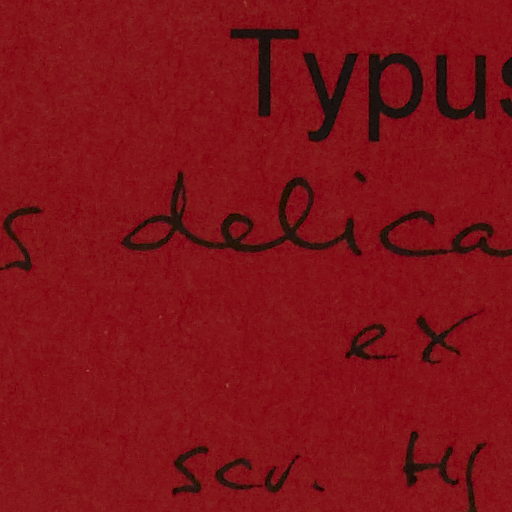 Typus
s delica
ex
scr. Hg